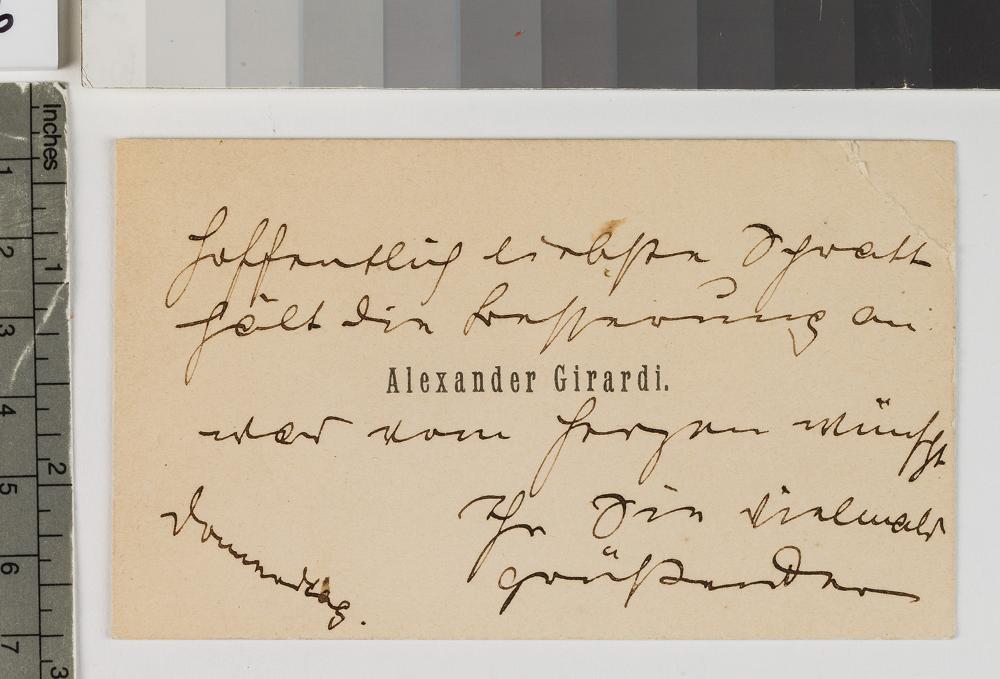 Inches
1
2
3
4
5
6
7
1
2
3
Hoffentlich liebste Schratt
hält die Besserung an
Alexander Girardi.
was vom Herzen wünscht
Ihr Sie vielmals
grüßender
Donnerstag.